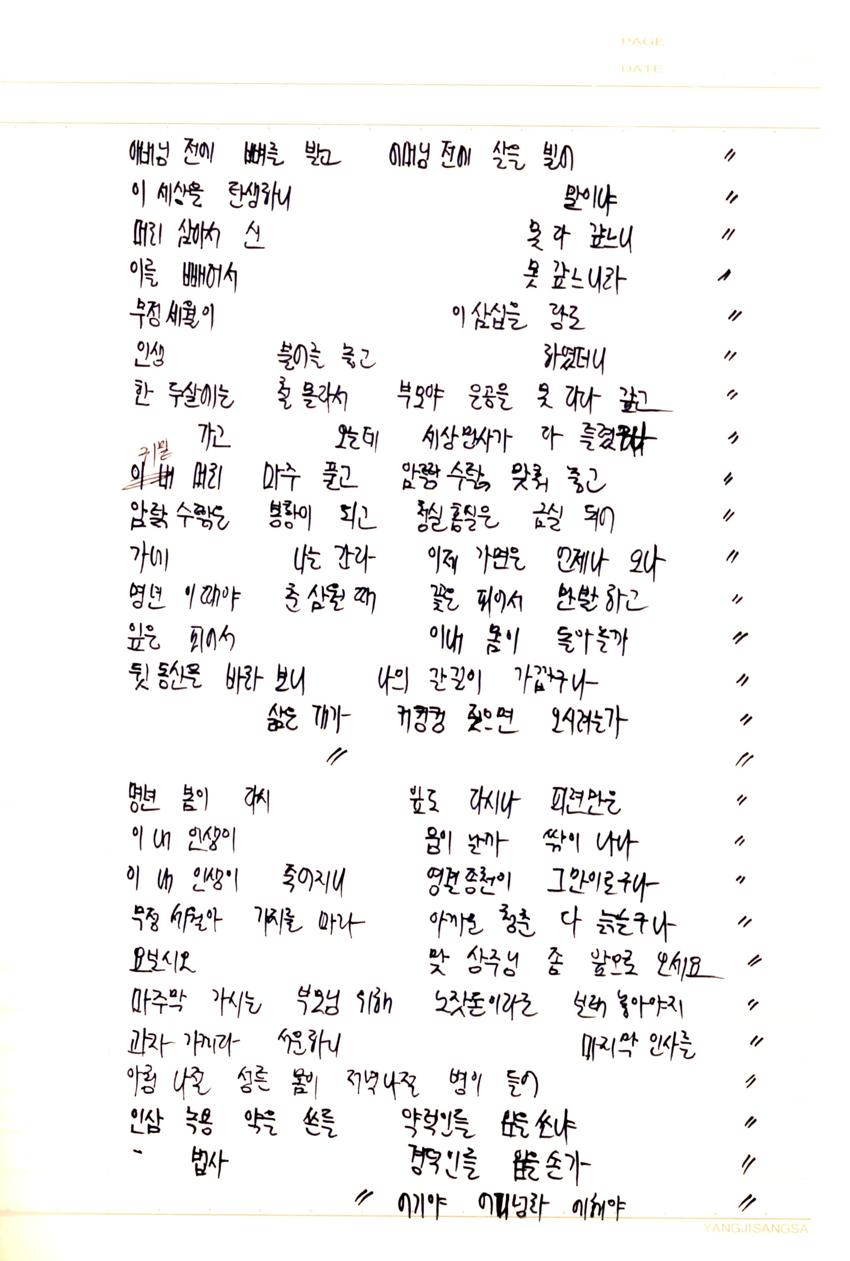 PAGE
DATE
애버님 전에 뼈를 받고 어머님 전에 살을 빌어 〃
이 세상을 탄생하니 말이냐 〃
머리 삼아서 신 못 다 갚느니 〃
이를 빼어서 못 갚느니라 〃
무정세월이 이삼십을 당도 〃
인생 놓고 하였더니 〃
한 두살에는 철 몰라서 부모야 은공을 못 다다 갚고 〃
가고 오는데 세상만사가 다 틀렸구나 〃
귀밑
머리 마주 풀고 암탉 수탉 맞춰 놓고 〃
암탉 수탉은 봉황이 되고 청실홍실은 금실 되어 〃
가네 나는 간다 이제 가면은 언제나 오나 〃
명년 이때야 춘삼월 때 꽃은 피어서 만발하고 〃
잎은 피어서 이내 몸이 돌아올까 〃
뒷동산을 바라 보니 나의 갈길이 가깝구나 〃
삶은 개가 커컹컹 짖으면 오시려는가 〃
〃 〃
명년 봄이 다시 잎도 다시나 피련만은 〃
이 내 인생이 움이 난까 싹이 나나 〃
이 내 인생이 죽어지니 영결종천이 그만이로구나 〃
무정세월아 가지를 마라 아까운 청춘 다 늙는구나 〃
요보시요 맞상주님 좀 앞으로 오세요 〃
마주막 가시는 부모님 위해 노잣돈이라도 보태 놓아야지 〃
과자 가자 서운하니 마지막 인사를 〃
아침 나절 성튼 몸이 저녁나절 병이 들어 〃
인삼 녹용 약을 쓴들 약력인들 입을쏘냐 〃
법사 경덕인들 입을손가 〃
〃 어기야 어러넘차 에헤야 〃
YANGJISANGSA